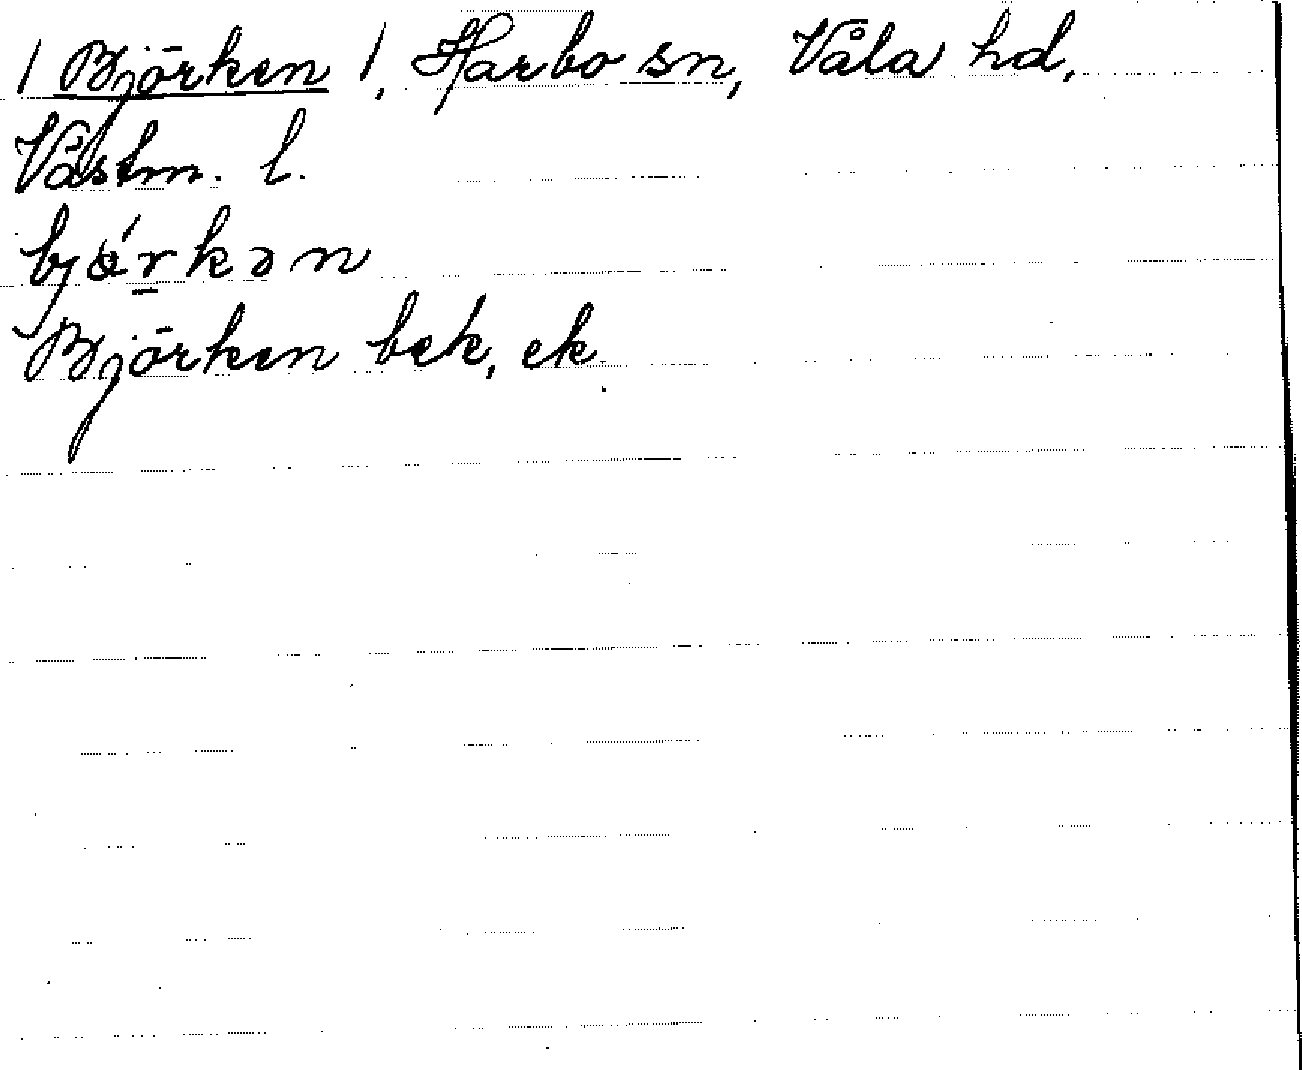 / Björken /, Harbo sn, Våla hd,
Västm. l.
bjǿrkən
Björken bek, ek.